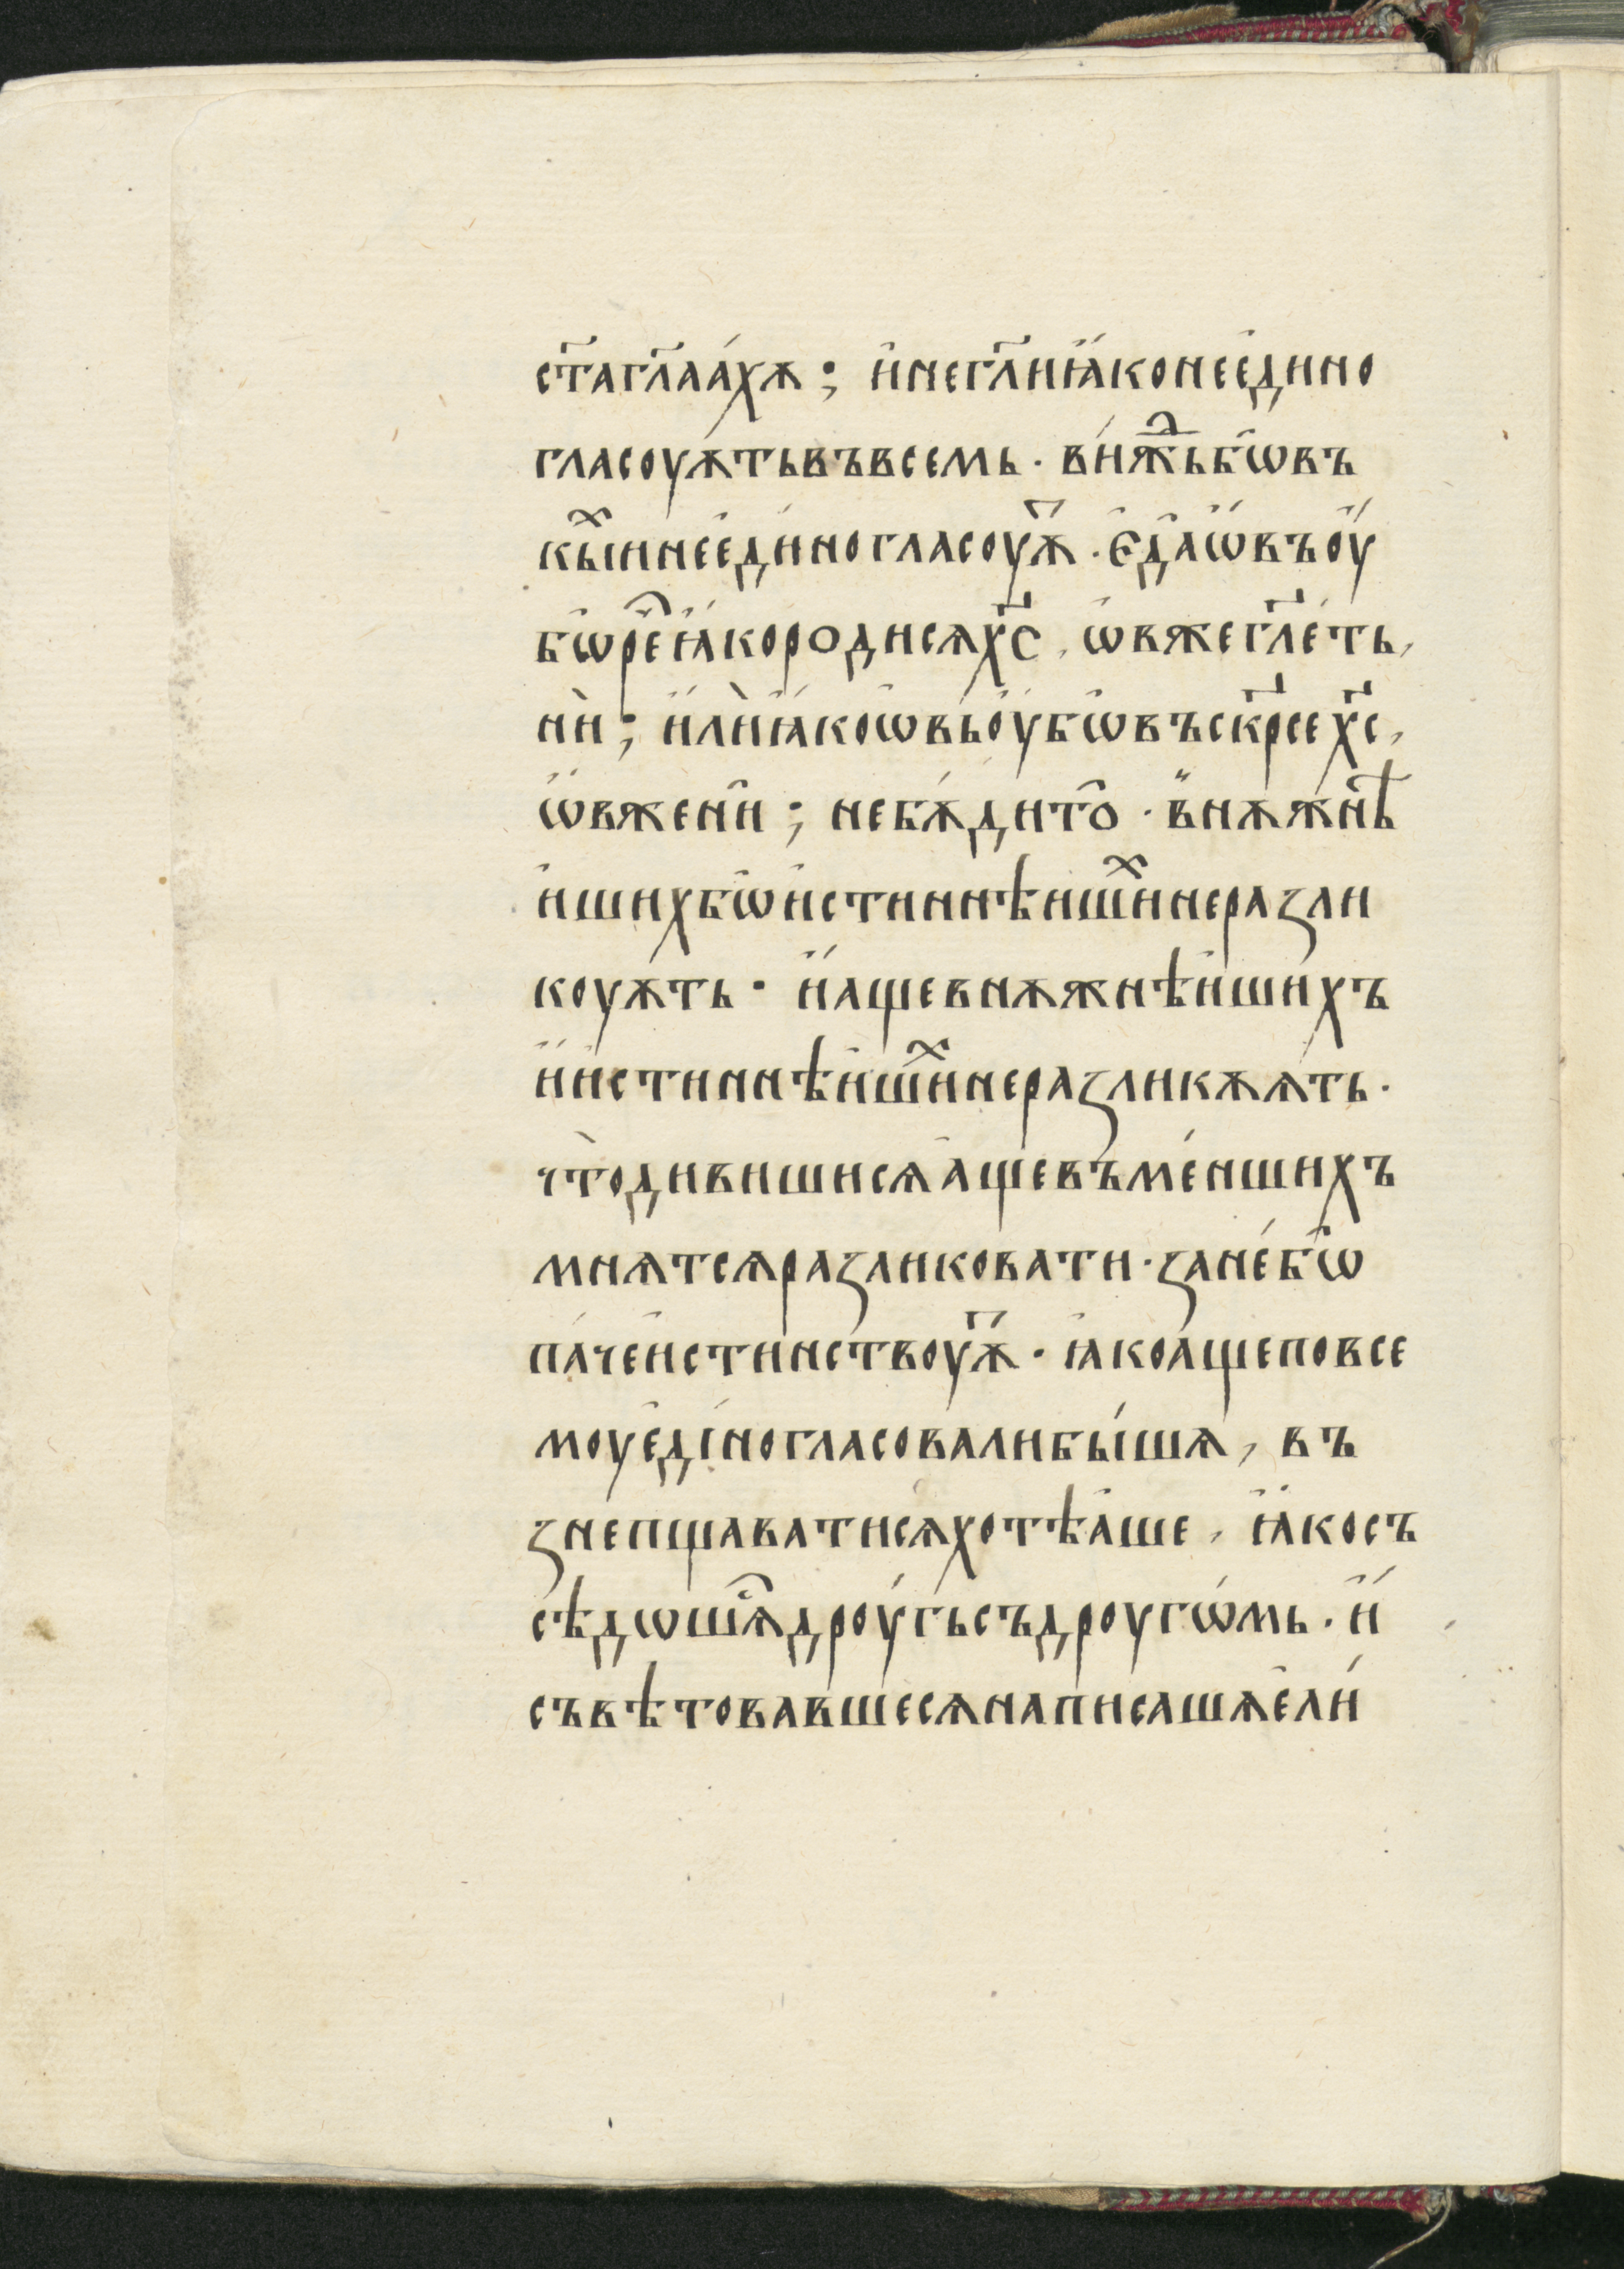 ст҃агл҃аа́хѫ; и҆негл҃иꙗ҆́конеє҆ди́но
гласоуѫ́тьвъвсемь · ви́ждⷧ҇ьбѡ҆въ
кы́ⷯннеє҆ди́ногласоу́ѫⷮ · є҆да̀ѡ҆́въо҆у́
бѡ҆ре́ⷱꙗ҆́короди́сѧх҃с , ѡ҆вжегл҃е́ть ,
нѝ; и҆лѝꙗ҆́коѡ҆вьо҆у́бѡ҆въск҃рсех҃с ,
ѡ҆́вженѝ; небѫ́дито̀ · внѫжнѣ́
и҆шихбѡ҆и҆стиннѣи҆ши́ⷯнеразли
коуѫ́ть · и҆́а҆щевнѫжнѣ́и҆шихъ
и҆и҆́стиннѣи҆ши́ⷯнеразликѫѫ́ть ·
что̀дивишисѧа҆́щевъме́ншихъ
мнѧтсѧразликовати · зане́бѡ҆
па́чеи҆́стинствоуѫ́ⷮ · ꙗ҆́коа҆́щеповсе
моує҆ди́ногласовалибы́шѧ , въ
знепщаватисѧхотѣа҆́ше , ꙗ҆́косъ
сѣ́дѡшѧ́ⷭдроу́гьсъдроугѡ́мь · и҆́
съвѣ́товавшесѧнаписашѧє҆ли́